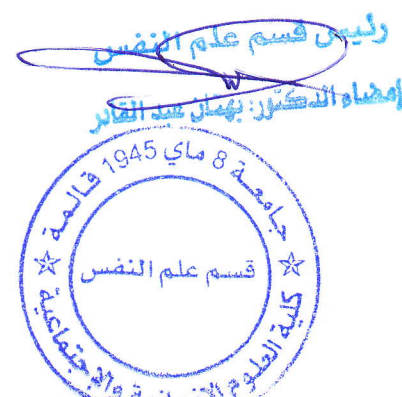 رئيس قسم علم النفس
إمضاء الدكتور: بهتان عبد القادر
جامعة 8 ماي 1945 قالمة
قسم علم النفس
كلية العلوم الإنسانية والاجتماعية